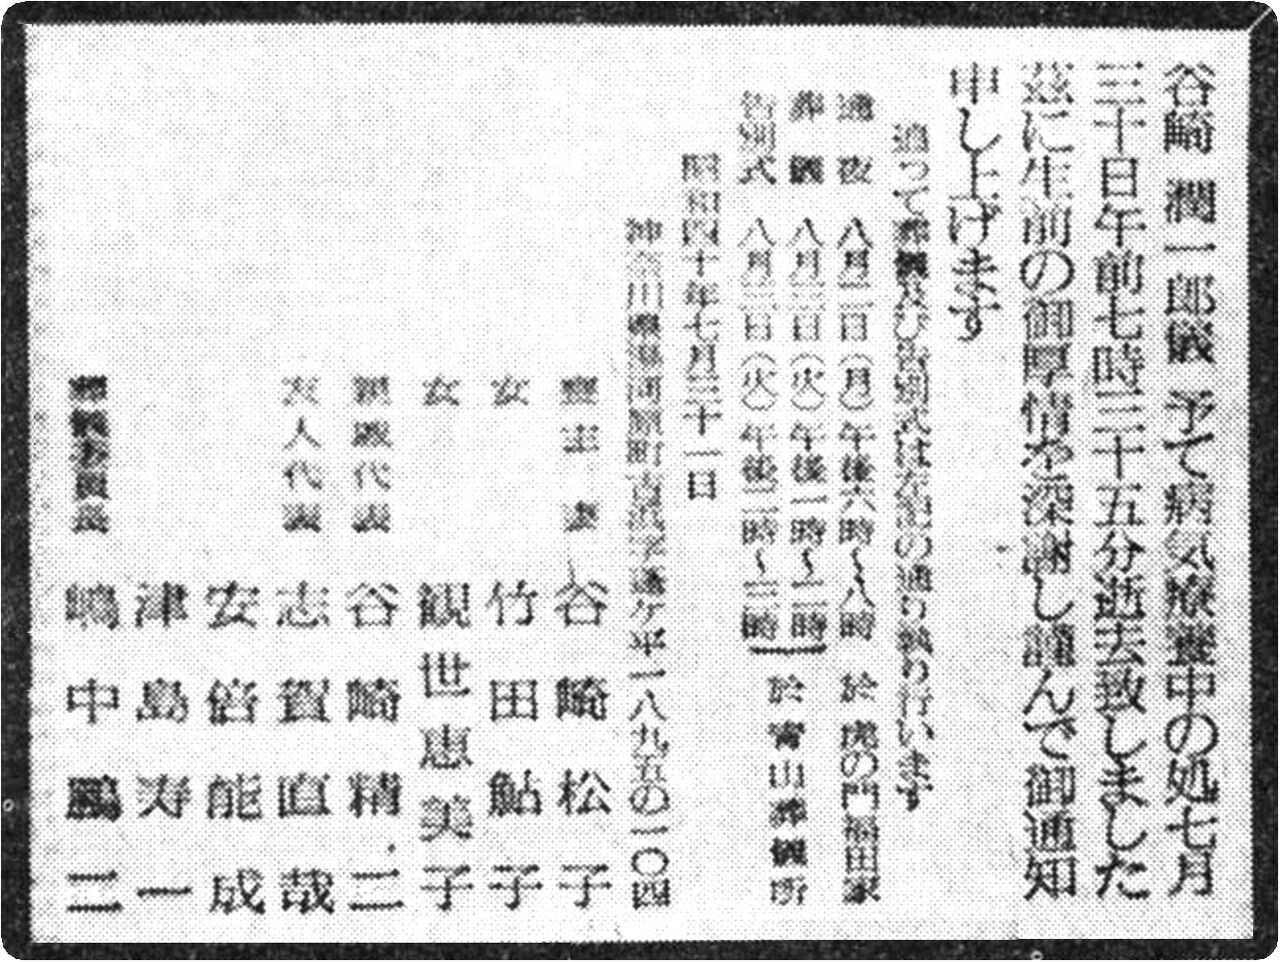 谷崎 潤一郎儀 予て病気療養中の処七月
三十日午前七時三十五分逝去致しました
茲に生前の御厚情を深謝し謹んで御通知
申し上げます
追って葬儀及び告別式は左記の通り執り行います
通夜 八月二日(月)午後六時~八時 於 虎の門福田家
葬儀 八月三日(火)午後一時~二時
告別式 八月三日(火)午後二時~三時
於 青山葬儀所
昭和四十年七月三十一日
神奈川県湯河原町吉浜字蓬ケ平一八九五の一〇四
喪主 妻 谷崎松子
女 竹田鮎子
女 観世恵美子
親戚代表 谷崎精二
友人代表 志賀直哉
安倍能成
津島寿一
葬儀委員長 嶋中鵬二